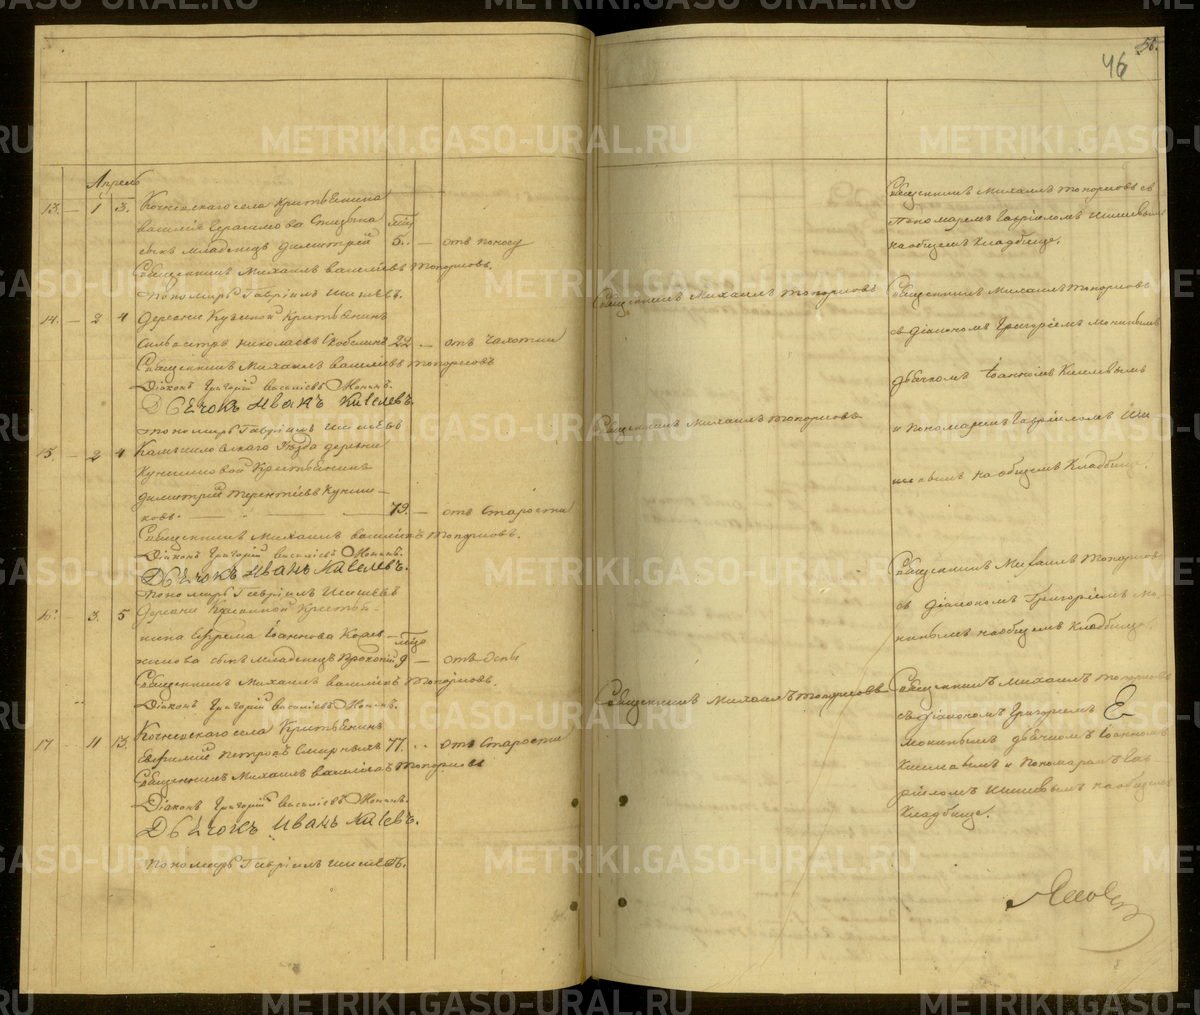 56.
46
Апрель
13. 1 3. Кочневскаго села Крестьянина
Василія Герасимова
сынъ младенецъ Димитрій 5. отъ поносу
Священникъ Михаилъ Василіевъ Топорковъ.
Пономарь Гавріилъ Шишевъ.
14. 2 4 Деревни Крестьянинъ
Николаевъ 22 отъ чахотки
Священникъ Михаилъ Василіевъ Топорковъ
Діаконъ Григорій Василіевъ Мокинъ.
Дьячокъ Иванъ Киселевъ.
Пономарь Гавріилъ Шишевъ
15. 2 4 Камышловскаго Уѣзда деревни
Крестьянинъ
Димитрій Терентіевъ
ковъ. 79. отъ Старости
Священникъ Михаилъ Василіевъ Топорковъ.
Діаконъ Григорій Василіевъ Мокинъ.
Дьячокъ Иванъ Киселевъ.
Пономарь Гавріилъ Шишевъ
16. 3. 5 Деревни Крестья-
нина Ефрема Іоаннова
сынъ младенецъ Прокопій 9 отъ Оспы
Священникъ Михаилъ Василіевъ Топорковъ.
Діаконъ Григорій Василіевъ Мокинъ.
17 11 13. Кочневскаго села Крестьянинъ
Евфимій Петровъ Смирныхъ 77. отъ Старости
Священникъ Михаилъ Василіевъ Топорковъ
Діаконъ Григорій Василіевъ Мокинъ.
Дьячокъ Иванъ
Пономарь Гавріилъ Шишевъ.
Священникъ Михаилъ Топорковъ
Священникъ Михаилъ Топорковъ
Священникъ Михаилъ Топорковъ
Священникъ Михаилъ Топорковъ съ
Пономаремъ Гавріиломъ Шишевымъ
на общемъ Кладбище.
Священникъ Михаилъ Топорковъ
съ Діакономъ Григоріемъ Мокинымъ
дьячкомъ Іоанномъ Киселевымъ
и Пономаремъ Гавріиломъ Ши
шевымъ на общемъ Кладбище.
Священникъ Михаилъ Топорковъ
съ Діакономъ Григоріемъ Мо-
кинымъ на общемъ Кладбище.
Священникъ Михаилъ Топорковъ
съ Діакономъ Григоріемъ
Мокинымъ дьячкомъ Іоанномъ
Киселевымъ и Пономаремъ Гав-
ріиломъ Шишевымъ на общемъ
Кладбище.
METRIKI.GASO-URAL.RU